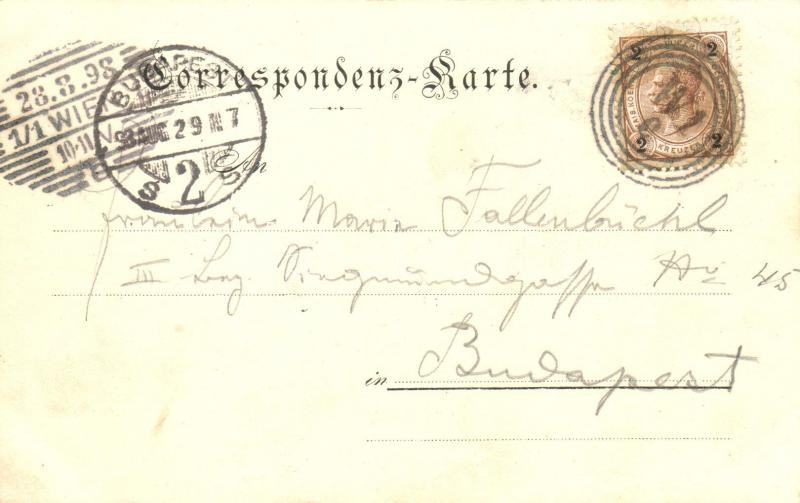 Correspondenz-Karte.
28.8.98
1/1 WIE
10-11 V
BUDAPEST
98 AUG 29 N 7
2
2 2
2 KREUZER 2
An
Fräulein Marie Fallenbüchl
III Bez Siegmundgasse No 45
in Budapest